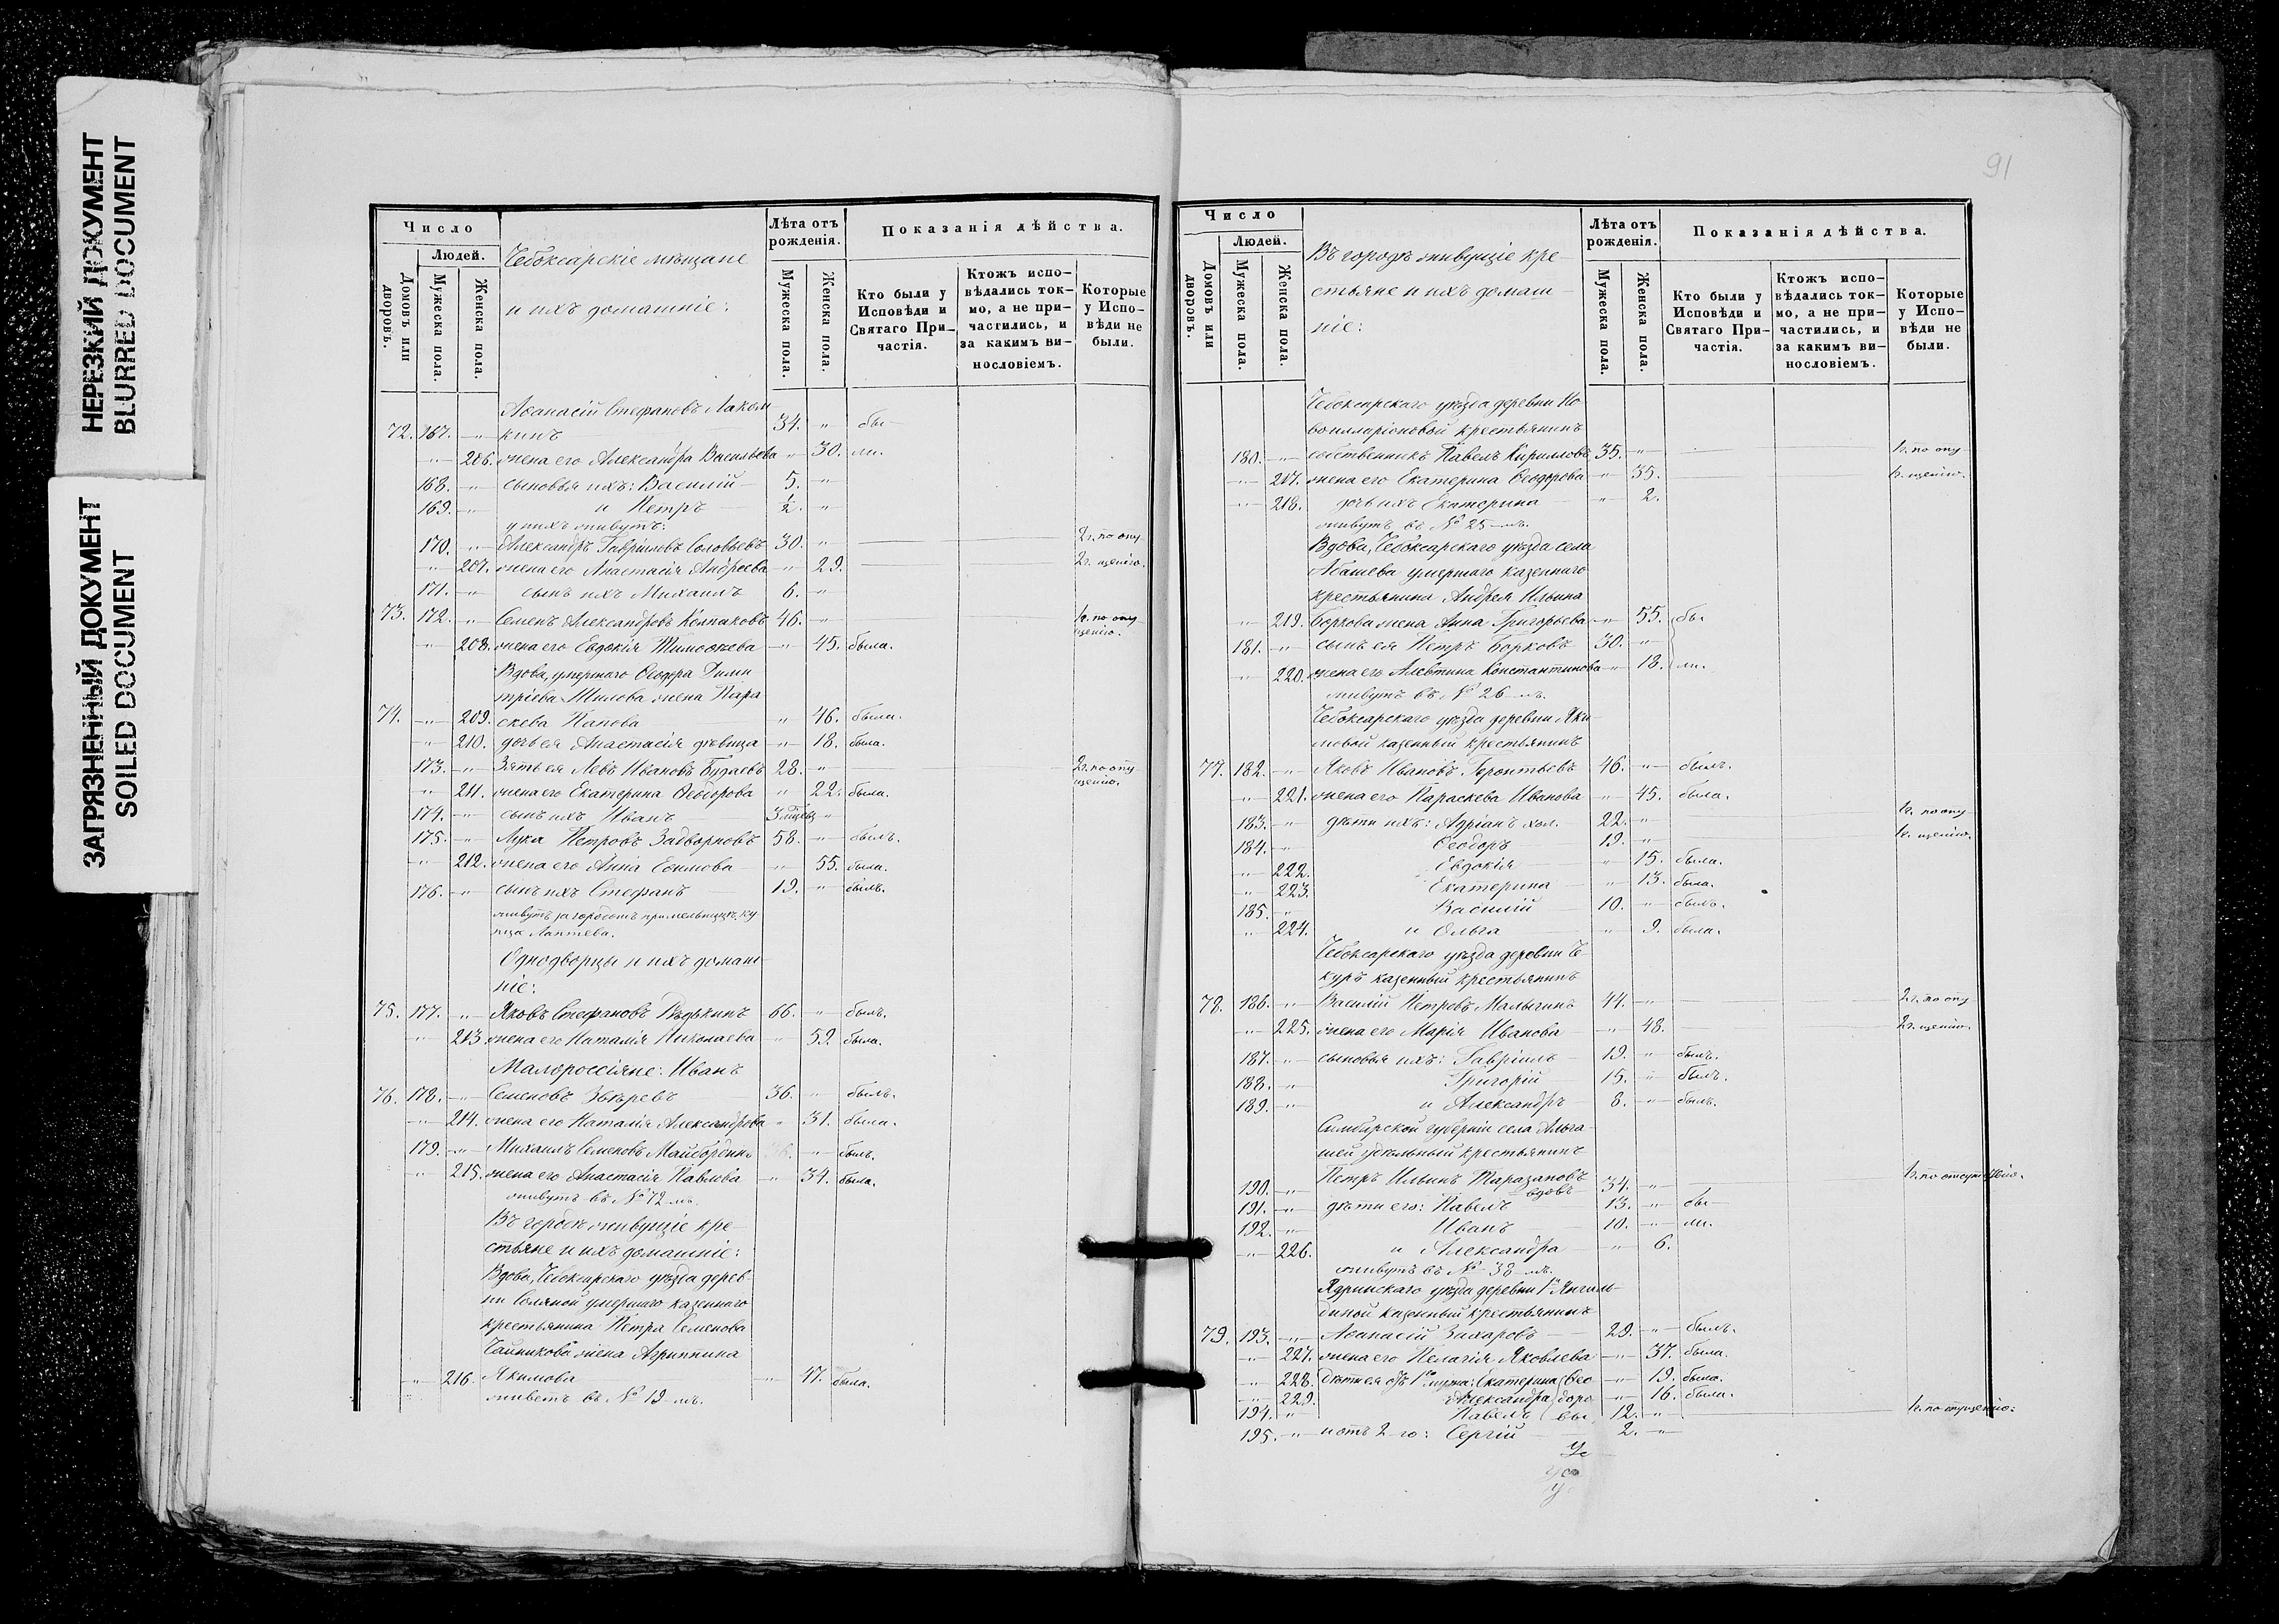 НЕРЕЗКИЙ ДОКУМЕНТ
BLURRED DOCUMENT
ЗАГРЯЗНЕННЫЙ ДОКУМЕНТ
SOILED DOCUMENT
Число
Людей.
Домовъ или дворовъ.
Мужеска пола.
Женска пола.
Чебоксарскіе мѣщане
и ихъ домашніе:
Лѣта отъ рожденія.
Мужеска пола.
Женска пола.
Показанія дѣйства.
Кто были у Исповѣди и Святаго Причастія.
Ктожъ исповѣдались токмо, а не причастились, и за какимъ винословіемъ.
Которые у Исповѣди не были.
Аѳанасій Стефановъ Лаком
72. 167. —"— кинъ 34. " бы
—"— 206. жена его Александра Васильева —"— 30. ли.
168. —"— сыновья ихъ: Василій 5. —"
169. —"— и Петръ ½. —"
у нихъ живутъ:
170. —"— Александръ Гавриловъ Соловьевъ 30. —" 2 г. по опу
—"— 207. жена его Анастасія Андреева —"— 29. 2 г. щенію.
171. —"— сынъ ихъ Михаилъ 6. —"
73. 172. —"— Семенъ Александровъ Колпаковъ 46. —" 1 г. по опу
щенію.
—"— 208. жена его Евдокія Тимоѳеева —"— 45. была.
Вдова, умершаго Ѳеодора Дими
тріева Шилова жена Пара
74. —"— 209. скева Панова " 46. была.
—"— 210. дочь ея Анастасія дѣвица —"— 18. была.
173. —"— Зять ея Левъ Ивановъ Будаевъ 28. —" 2 г. по опу
щенію.
—"— 211. жена его Екатерина Ѳеодорова " 22. была.
174. —"— сынъ ихъ Иванъ
175. —"— Лука Петровъ Задворновъ 58. —" былъ.
—"— 212. жена его Анна Ефимова —"— 55. была.
176. —"— сынъ ихъ Стефанъ 19. —" былъ.
живутъ за городомъ при мельницѣ ку
пца Лаптева.
Однодворцы и ихъ домаш
ніе:
75. 177. —"— Яковъ Стефановъ Рѣдькинъ 66. " былъ.
—"— 213. жена его Наталія Николаева —"— 59. была.
Малороссіяне: Иванъ
76. 178. —"— Семеновъ Звѣревъ 36. —" былъ.
—"— 214. жена его Наталія Александрова " 31. была.
179. —"— Михаилъ Семеновъ —" былъ.
—"— 215. жена его Анастасія Павлова —"— 34. была.
живутъ въ № 72-мъ.
Въ городѣ живущіе кре-
стьяне и ихъ домашніе:
Вдова, Чебоксарскаго уѣзда дерев-
ни Соляной умершаго казеннаго
крестьянина Петра Семенова
Чайникова жена Агриппина
—"— 216. Якимова —"— 47. была.
живетъ въ № 19-мъ.
91
Число
Людей.
Домовъ или дворовъ.
Мужеска пола.
Женска пола.
Въ городѣ живущіе кре-
стьяне и ихъ домаш-
ніе:
Лѣта отъ рожденія.
Мужеска пола.
Женска пола.
Показанія дѣйства.
Кто были у Исповѣди и Святаго Причастія.
Ктожъ исповѣдались токмо, а не причастились, и за какимъ винословіемъ.
Которые у Исповѣди не были.
Чебоксарскаго уѣзда деревни Но
воилларіоновой крестьянинъ
180. —"— собственникъ Павелъ Кирилловъ 35. —" 1 г. по опу
—"— 217. жена его Екатерина Ѳеодорова —"— 35. 1 г. щенію.
—"— 218. дочь ихъ Екатерина —"— 2.
живутъ въ № 25-мъ.
Вдова, Чебоксарскаго уѣзда села
Абашева умершаго казеннаго
крестьянина Андрея Ильина
—"— 219. Боркова жена Анна Григорьева —"— 55. бы
181. —"— сынъ ея Петръ Борковъ 30. —"
—"— 220. жена его Алевтина Константинова —"— 18. ли.
живутъ въ № 26-мъ.
Чебоксарскаго уѣзда деревни Яки
мовой казенный крестьянинъ
77. 182. —"— Яковъ Ивановъ Геронтьевъ 46. —" былъ.
—"— 221. жена его Параскева Иванова —"— 45. была.
183. —"— дѣти ихъ: Адріанъ хол. 22. —" 1 г. по опу
184. —"— Ѳеодоръ 19. —" 1 г. щенію.
—"— 222. Евдокія —"— 15. была.
—"— 223. Екатерина —"— 13. была.
185. —"— Василій 10. —" былъ.
—"— 224. и Ольга —"— 9. была.
Чебоксарскаго уѣзда деревни Че-
куръ казенный крестьянинъ
78. 186. —"— Василій Петровъ Малыгинъ 44. —" 2 г. по опу
—"— 225. жена его Марія Иванова —"— 48. 2 г. щенію.
187. —"— сыновья ихъ: Гавріилъ 19. —" былъ.
188. —"— Григорій 15. —" былъ.
189. —"— и Александръ 8. —" былъ.
Симбирской губерніи села Альга-
шей удѣльный крестьянинъ
190. —"— Петръ Ильинъ Таразановъ вдовъ 34. —" 1 г. по отсутствію.
191. —"— дѣти его: Павелъ 13. —" бы
192. —"— Иванъ 10. —" ли.
—"— 226. и Александра —"— 6.
живутъ въ № 38-мъ.
Ядринскаго уѣзда деревни 1й Янгиль-
диной казенный крестьянинъ
79. 193. —"— Аѳанасій Захаровъ 29. —" былъ.
—"— 227. жена его Пелагія Яковлева —"— 37. была.
—"— 228. дѣти ея отъ 1го мужа: Екатерина Ѳео —"— 19. была.
—"— 229. Александра доро —"— 16. была.
194. —"— Павелъ вы 12. —" 1 г. по опущенію.
195. —"— и отъ 2-го: Сергій 2. —"